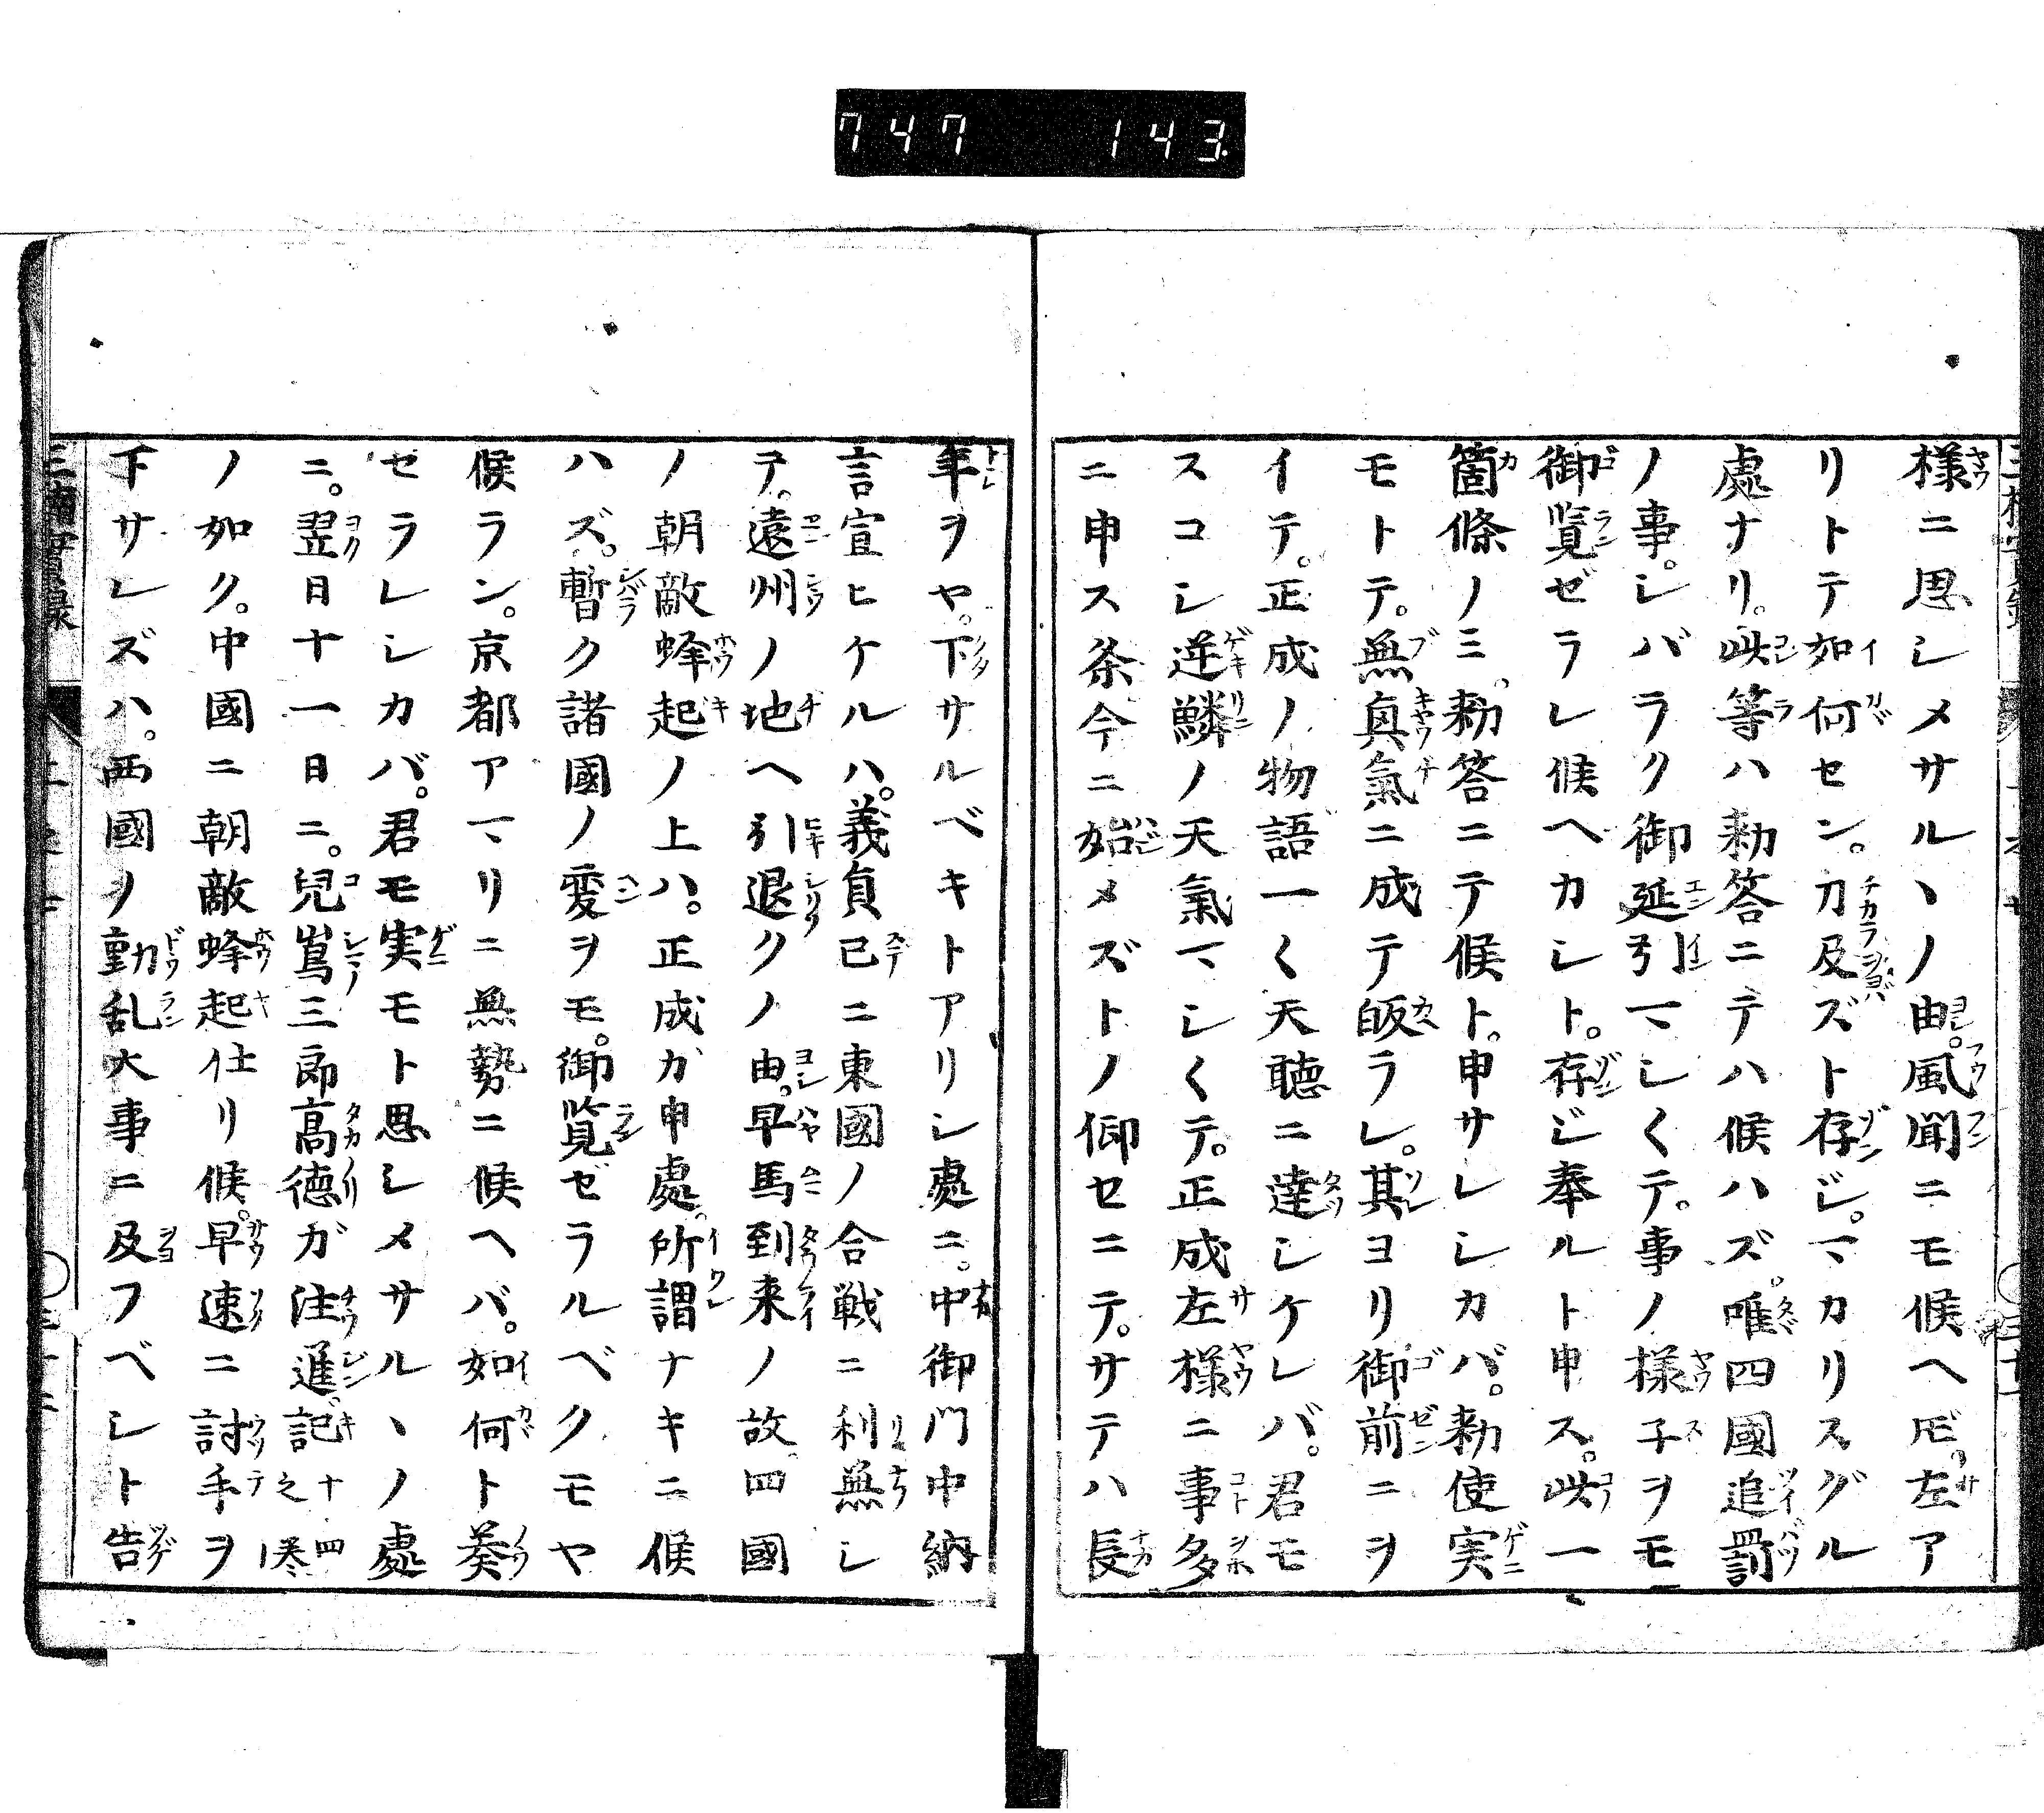 747 143
様ニ思シメサルヽノ由。風聞ニモ候ヘ𪜈。左ア
リトテ如何セン。力及ズト存ジ。マカリスグル
處ナリ。此等ハ勅答ニテハ候ハズ。唯四國追罸
ノ事。シバラク御延引マシ〱テ。事ノ様子ヲモ
御覧ゼラレ候ヘカシト。存ジ奉ルト申ス。此一
箇條ノミ。勅答ニテ候ト。申サレシカバ。勅使実
モトテ。無真氣ニ成テ皈ラレ。其ヨリ御前ニヲ
イテ。正成ノ物語一〱天聴ニ達シケレバ。君モ
スコシ逆鱗ノ天氣マシ〱テ。正成左様ニ事多
ニ申ス条。今ニ始メズトノ仰セニテ。サテハ長
年ヲヤ。下サルベキトアリシ處ニ。中御門中納
言宣ヒケルハ。義貞已ニ東國ノ合戦ニ利無シ
テ。遠州ノ地ヘ引退クノ由。早馬到来ノ故。四國
ノ朝敵蜂起ノ上ハ。正成カ申處。所謂ナキニ候
ハズ。暫ク諸國ノ変ヲモ。御覧ゼラルベクモヤ
候ラン。京都アマリニ無勢ニ候ヘバ。如何ト奏
セラレシカバ。君モ実モト思シメサルヽノ處
ニ。翌日十一日ニ。兒嶌三郎高徳ガ注進。記十四之巻
ノ如ク。中國ニ朝敵蜂起仕リ候。早速ニ討手ヲ
下サレズハ。西國ヲ動乱大事ニ及フベシト告